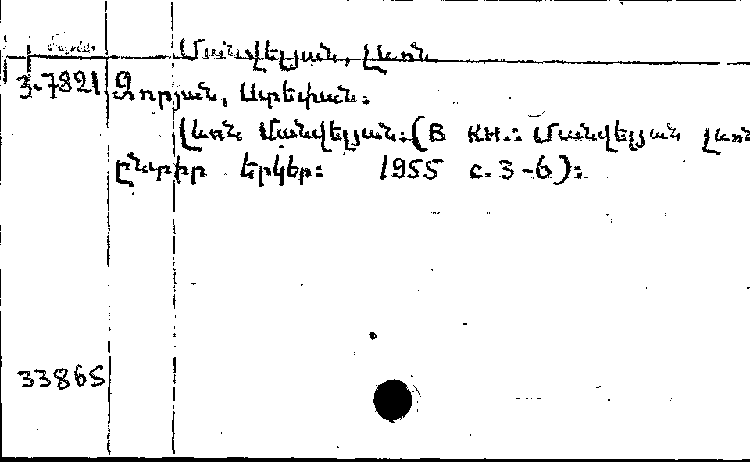 Մանվելյան, Լևոն
3.7821 Զորյան, Ստեփան:
Լևոն Մանվելյան:(В кн.: Մանվելյան Լևոն
Ընտիր երկեր: 1955 с. 3-6):
33865